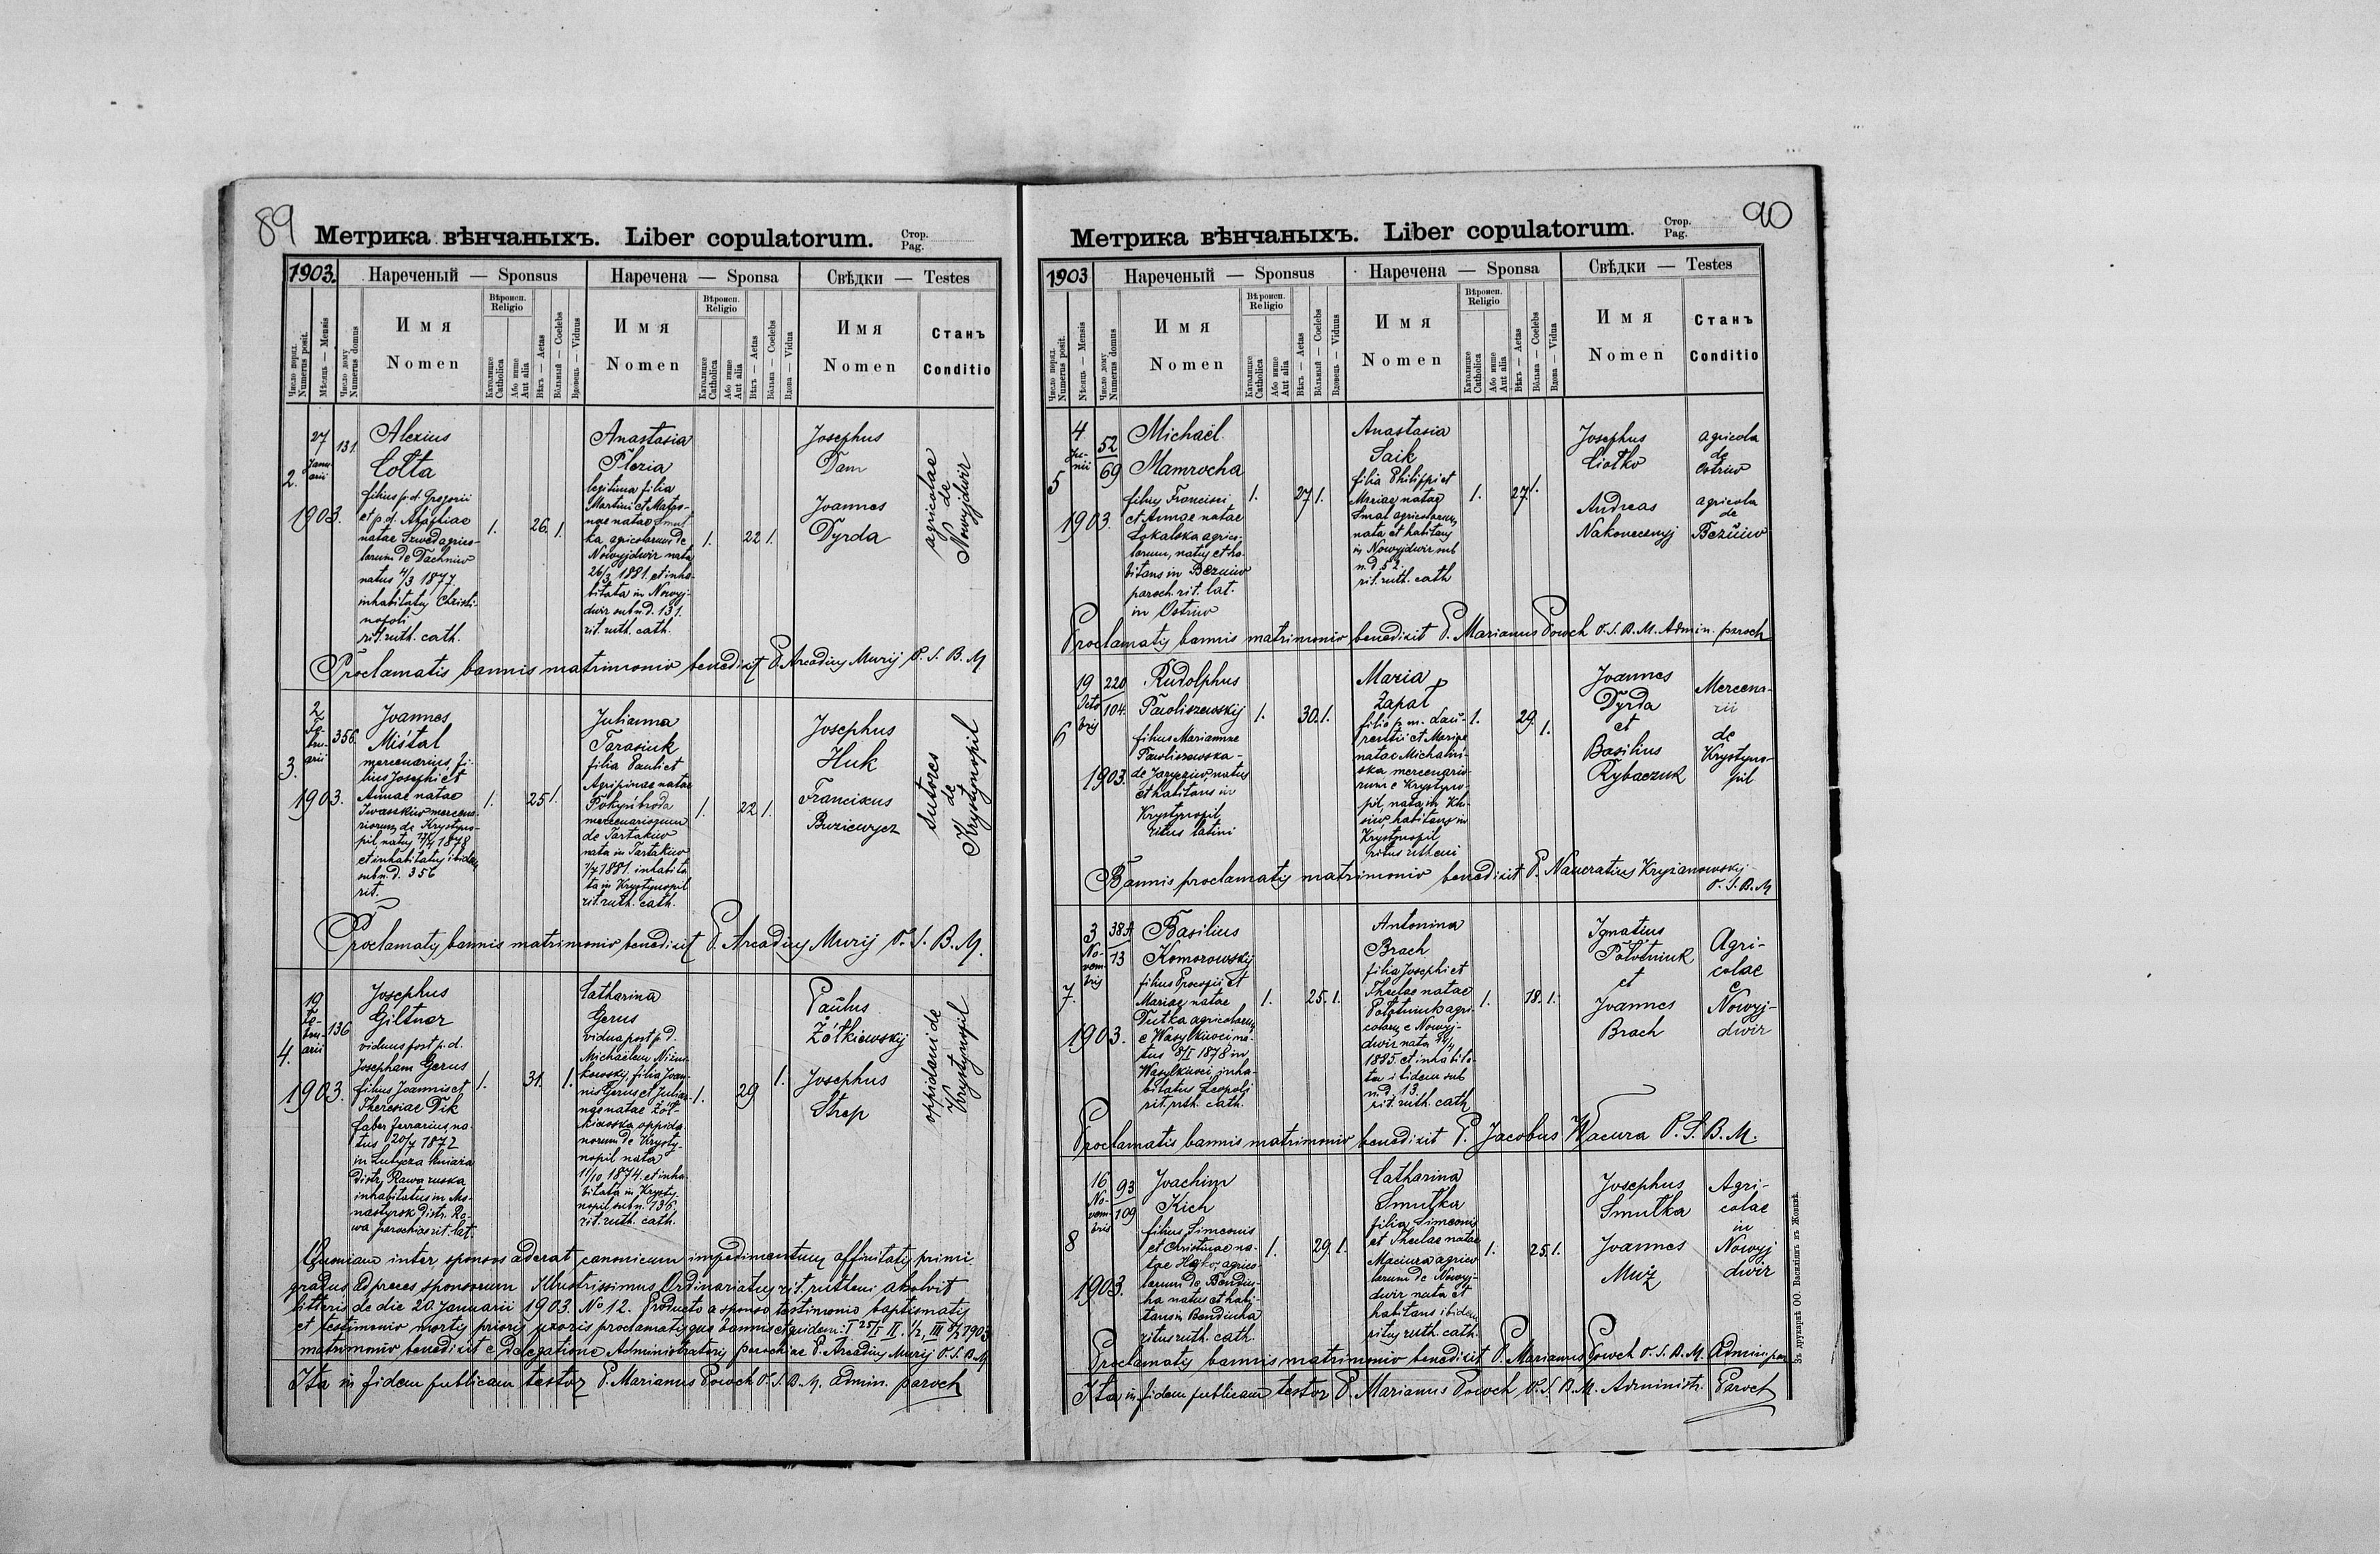 89
Метрика вѣнчаныхъ. Liber copulatorum.
Стор.
Pag.
1903.
Нареченый — Sponsus
Наречена — Sponsa
Свѣдки — Testes
Число поряд.
Numerus posit.
Мѣсяць — Mensis
Число дому
Numerus domus
Имя
Nomen
Вѣроисп.
Religio
Католицке
Catholica
Або инше
Aut alia
Вѣкъ — Aetas
Во́льный — Coelebs
Вдовець — Viduus
Имя
Nomen
Вѣроисп.
Religio
Католицке
Catholica
Або инше
Aut alia
Вѣкъ — Aetas
Во́льна — Coelebs
Вдова — Vidua
Имя
Nomen
Станъ
Conditio
2.
27
Janu-
arii
1903.
131
Alexius
Colta
filius p. d. Gregorii
et p. d. Ahaphiae
natae Szwed agrico-
larum de Dachniw
natus 4/3 1877.
inhabitatus Christi-
nopoli
rit. ruth. cath.
1.
26.
1.
Anastasia
Plezia
legitima filia
Martini et Matro-
nae natae Smut
ka agricolarum de
Nowyjdwir nata
26/3 1881. et inha-
bitata in Nowyj-
dwir sub n. d. 131.
rit. ruth. cath.
1.
22
1.
Josephus
Dam
Joannes
Dyrda
agricolae
de
Nowyjdwir
Proclamatis bannis matrimonio benedixit P. Arcadius Muryj O. S. B. M
3.
2
Fe-
bru-
arii
1903.
356.
Joannes
Miśtal
mercenarius, fi-
lius Josephi et
Annae natae
Iwaskiw mercena-
riorum de Krystyno-
pil, natus 1878
et inhabitatus ibidem
sub n. d. 356
rit.
1.
25
1.
Julianna
Tarasiuk
filia Pauli et
Agripinae natae
mercenariorum
de Tartakiw
nata in Tartakiw
1/7 1881. inhabita
ta in Krystynopil
rit. ruth. cath.
1.
22
1.
Josephus
Huk
Francikus
Buziewycz
sutores
de
Krystynopil
Proclamatis bannis matrimonio benedixit P. Arcadius Muryj O. S. B. M.
4.
19
Fe-
bru-
arii
1903.
136
Josephus
Giltner
viduus post p. d.
Josepham Gerus
filius Joannis et
Theresiae Dik
faber ferrarius, na-
tus 20/7 1872
in Lubycza kniazia
distr. Rawa ruska
inhabitatus in Mo-
nastyrok distr. Ra-
wa parochiae rit. lat.
1.
31.
1.
Catharina
Gerus
vidua post p. d.
Michaëlem Niźni-
kowskyj, filia Joan-
nis Gerus et Julian-
nae natae Żół-
kiewska oppida-
norum de Krysty-
nopil nata
11/10 1874. et inha-
bitata in Krysty-
nopil sub n. 136.
rit. ruth. cath.
1.
29
1.
Paulus
Żółkiewskyj
Josephus
Strep
oppidani de
Krystynopil
Quoniam inter sponsos aderat canonicum impedimentum affinitatis primi
gradus, ad preces sponsorum Illustrissimus Ordinariatus rit. rutheni absolvit
litteris de die 20. Januarii 1903. No 12. Producto a sponso testimonio baptismatis
et testimonio mortis prioris uxoris proclamatisque bannis et quidem: I 25/I II. 1/2, III 8/2 1903
matrimonio benedixit e delegatione Administratoris parochiae P. Arcadius Muryj O. S. B. M
Ita in fidem publicam testor P. Marianus Powch O. S. B. M. Admin. paroch
90
Метрика вѣнчаныхъ. Liber copulatorum.
Стор.
Pag.
1903
Нареченый — Sponsus
Наречена — Sponsa
Свѣдки — Testes
Число поряд.
Numerus posit.
Мѣсяць — Mensis
Число дому
Numerus domus
Имя
Nomen
Вѣроисп.
Religio
Католицке
Catholica
Або инше
Aut alia
Вѣкъ — Aetas
Во́льный — Coelebs
Вдовець — Viduus
Имя
Nomen
Вѣроисп.
Religio
Католицке
Catholica
Або инше
Aut alia
Вѣкъ — Aetas
Во́льна — Coelebs
Вдова — Vidua
Имя
Nomen
Станъ
Conditio
5
4
Ju-
nii
1903.
52
69
Michaël
Mamrocha
filius Francisci
et Annae natae
Sokalska agrico-
larum, natus et ha-
bitans in Bezuiw
paroch. rit. lat.
in Ostriw
1.
27
1.
Anastasia
Saik
filia Philippi et
Mariae natae
Smal agricolarum,
nata et habitans
in Nowyjdwir sub
n. d. 52.
rit. ruth. cath
1.
27.
1.
Josephus
Ciołko
Andreas
Nakonecznyj
agricola
de
Ostriw
agricola
de
Bezuiw
Proclamatis bannis matrimonio benedixit P. Marianus Powch O. S. B. M. Admin. paroch
6
19
Octo
bris
1903.
220
104.
Rudolphus
Pawliszewskij
filius Mariannae
Pawliszewska
natus
et habitans in
Krystynopil
ritus latini
1.
30.
1.
Maria
Zapał
filia p. m. Lau-
rentii et Mariae
natae Michaliń-
ska mercenario-
rum e Krystyno-
pil, nata in
habitans in
Krystynopil
ritus rutheni
1.
29.
1.
Joannes
Dyrda
et
Basilius
Rybaczuk
Mercena-
rii
de
Krystyno-
pil
Bannis proclamatis matrimonio benedixit P. Naucratius Kryżanowskyj
O. S. B. M
7.
3
No-
vem-
bris
1903.
38A
13
Basilius
Komorowskij
filius Procopii et
Mariae natae
Dutka agricolarum
e Wasylkiwci na-
tus 8/I 1878 in
Wasylkiwci inha-
bitatus Leopoli
rit. ruth. cath.
1.
25.
1.
Antonina
Brach
filia Josephi et
Theclae natae
Połotniuk agri-
colarum e Nowyj-
dwir nata
1885. et inhabita-
ta ibidem sub
n. d. 13.
rit. ruth. cath
1.
18.
1.
Ignatius
Połotniuk
et
Joannes
Brach
Agri-
colae
e
Nowyj-
dwir
Proclamatis bannis matrimonio benedixit P. Jacobus Wacura O. S. B. M.
8
16
No-
vem-
bris
1903.
93
109
Joachim
Kich
filius Simeonis
et Christinae na-
tae Hojko, agrico-
larum de Bendiu-
ha natus et habi-
tans in Bendiuha
ritus ruth. cath.
1.
29.
1.
Catharina
Smutka
filia Simeonis
et Theclae natae
Maciura agrico
larum de Nowyj-
dwir nata et
habitans ibidem
ritus ruth. cath.
1.
25.
1.
Josephus
Smutka
Joannes
Muż
Agri-
colae
in
Nowyj
dwir
Proclamatis bannis matrimonio benedixit P. Marianus Powch O. S. B. M. Admin. par
Ita in fidem publicam testor P. Marianus Powch O. S. B. M. Administr. Paroch
Зъ друкарнѣ ОО. Василіянъ въ Жовквѣ.